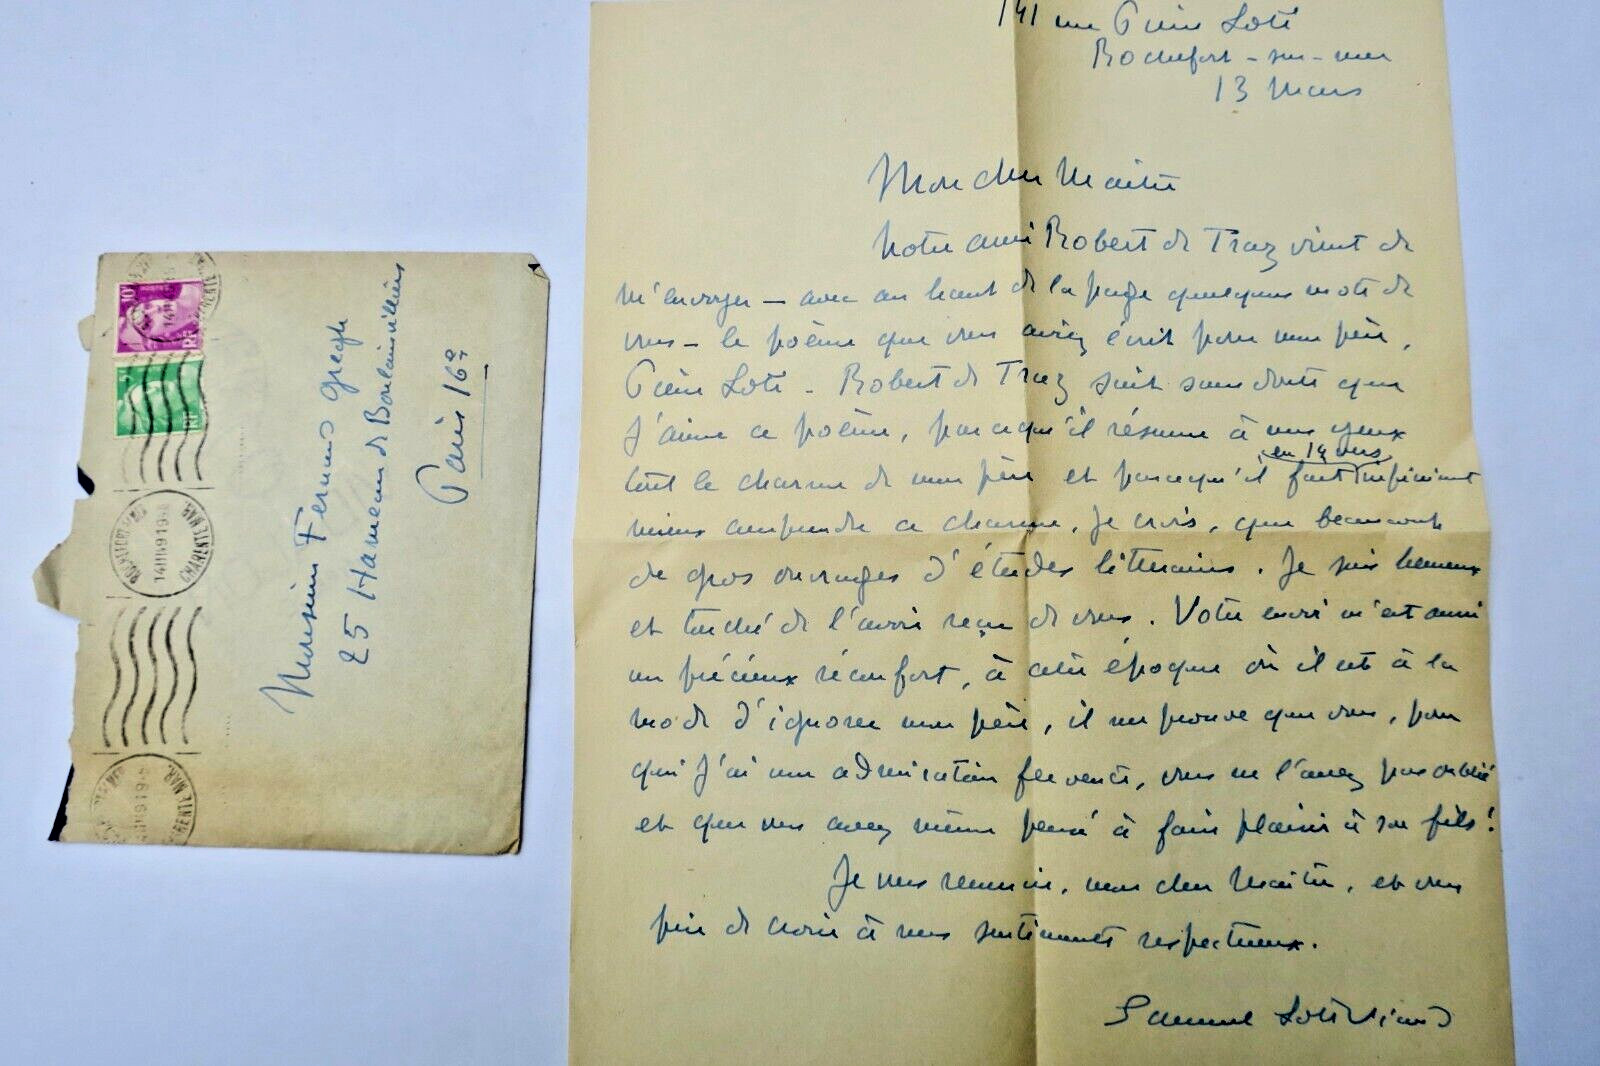 141 rue Pierre Loti
Rochefort-sur-mer
13 Mars
Mon cher Maître
Notre ami Robert de Traz vient de
m'envoyer — avec en haut de la page quelques mots de
vous — le poème que vous aviez écrit pour mon père,
Pierre Loti — Robert de Traz sait sans doute que
j'aime ce poème, parce qu'il résume à mes yeux
tout le charme de mon père et parce qu'il fait en 14 vers infiniment
mieux comprendre ce charme, je crois, que beaucoup
de gros ouvrages d'études littéraires. Je suis heureux
et touché de l'avoir reçu de vous. Votre envoi m'est aussi
un précieux réconfort, à cette époque où il est à la
mode d'ignorer mon père, il me prouve que vous, pour
qui j'ai une admiration fervente, vous ne l'avez pas oublié
et que vous avez même pensé à faire plaisir à son fils!
Je vous remercie, mon cher Maître, et vous
prie de croire à mes sentiments respectueux.
Samuel Loti Viaud
Monsieur Fernand Gregh
25 Hameau de Boulainvilliers
Paris 16e
10F
RF
5F
RF
ROCHEFORT-MER
14III49 19
CHARENTE MAR.